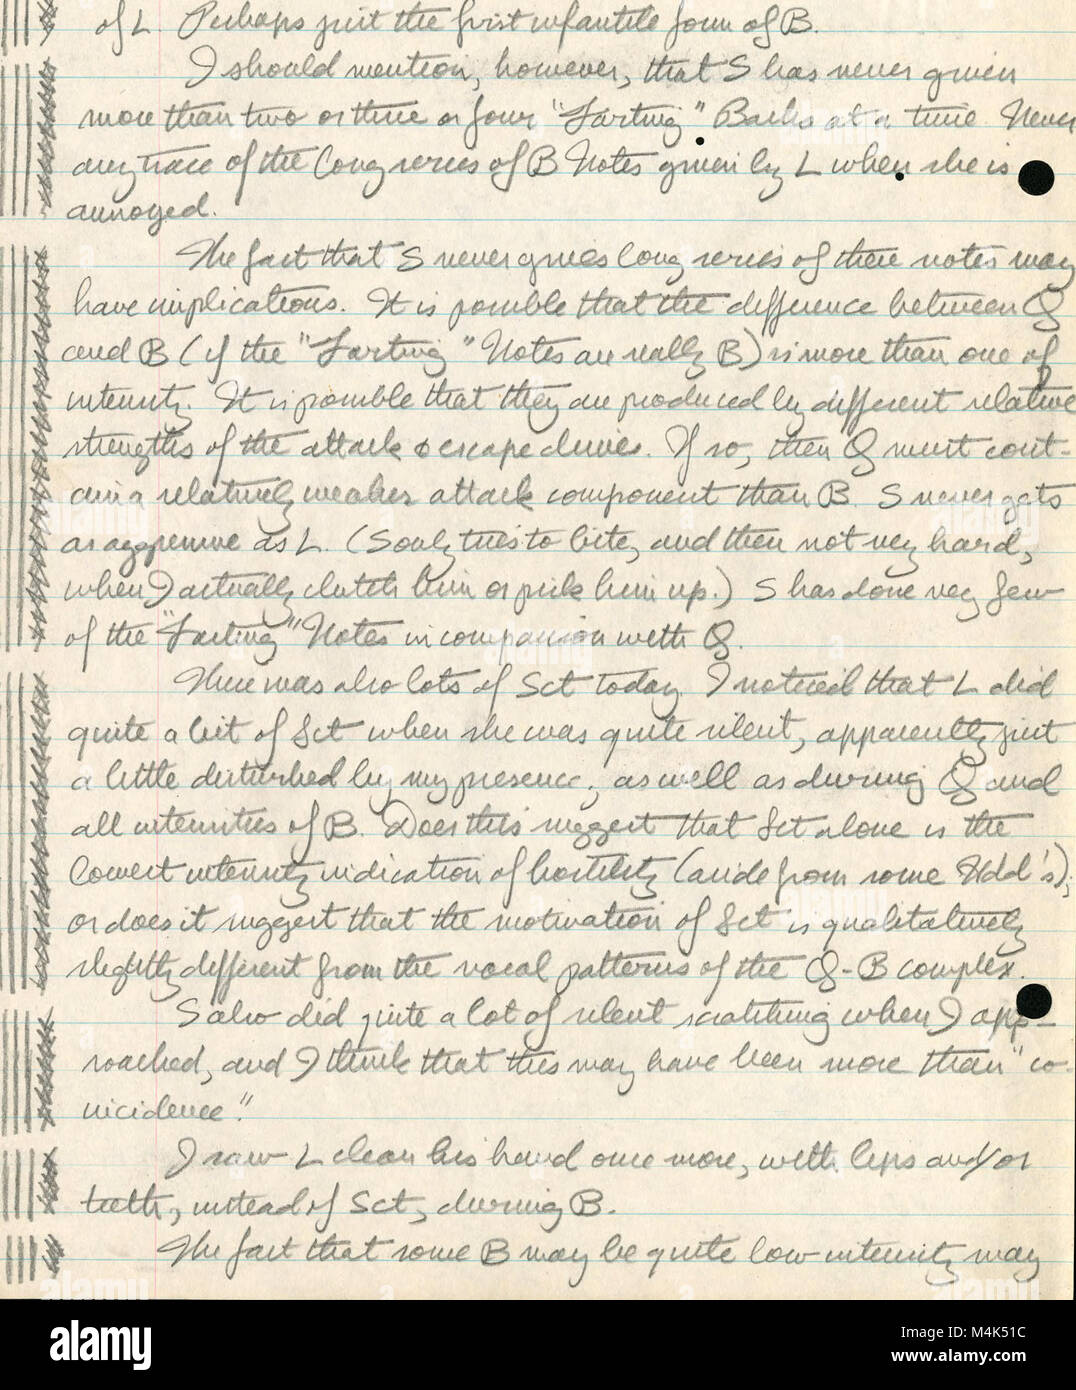 of L. Perhaps just the first infantile form of B.
I should mention, however, that S has never given
more than two or three or four "Farting" Barks at a time. Never
any trace of the long series of B Notes given by L when she is
annoyed.
The fact that S never gives long series of these notes may
have implications. It is possible that the difference between Q
and B (if the "Farting" Notes are really B) is more than one of
intensity. It is possible that they are produced by different relative
strengths of the attack & escape drives. If so, then Q must cont-
ain a relatively weaker attack component than B. S never gets
as aggressive as L. (S only tries to bite, and then not very hard,
when I actually clutch him or pick him up.) S has done very few
of the "Farting" Notes in comparison with Q.
There was also lots of Sct today. I noticed that L did
quite a bit of Sct when she was quite silent, apparently just
a little disturbed by my presence, as well as during Q and
all intensities of B. Does this suggest that Sct alone is the
lowest intensity indication of hostility (aside from some Hdd's);
or does it suggest that the motivation of Sct is qualitatively
slightly different from the vocal patterns of the Q-B complex.
S also did quite a lot of silent scratching when I app-
roached, and I think that this may have been more than "co-
incidence".
I saw L clean his hand once more, with lips and/or
teeth, instead of Sct, during B.
The fact that some B may be quite low intensity may
alamy
a
Image ID: M4K51C
www.alamy.com